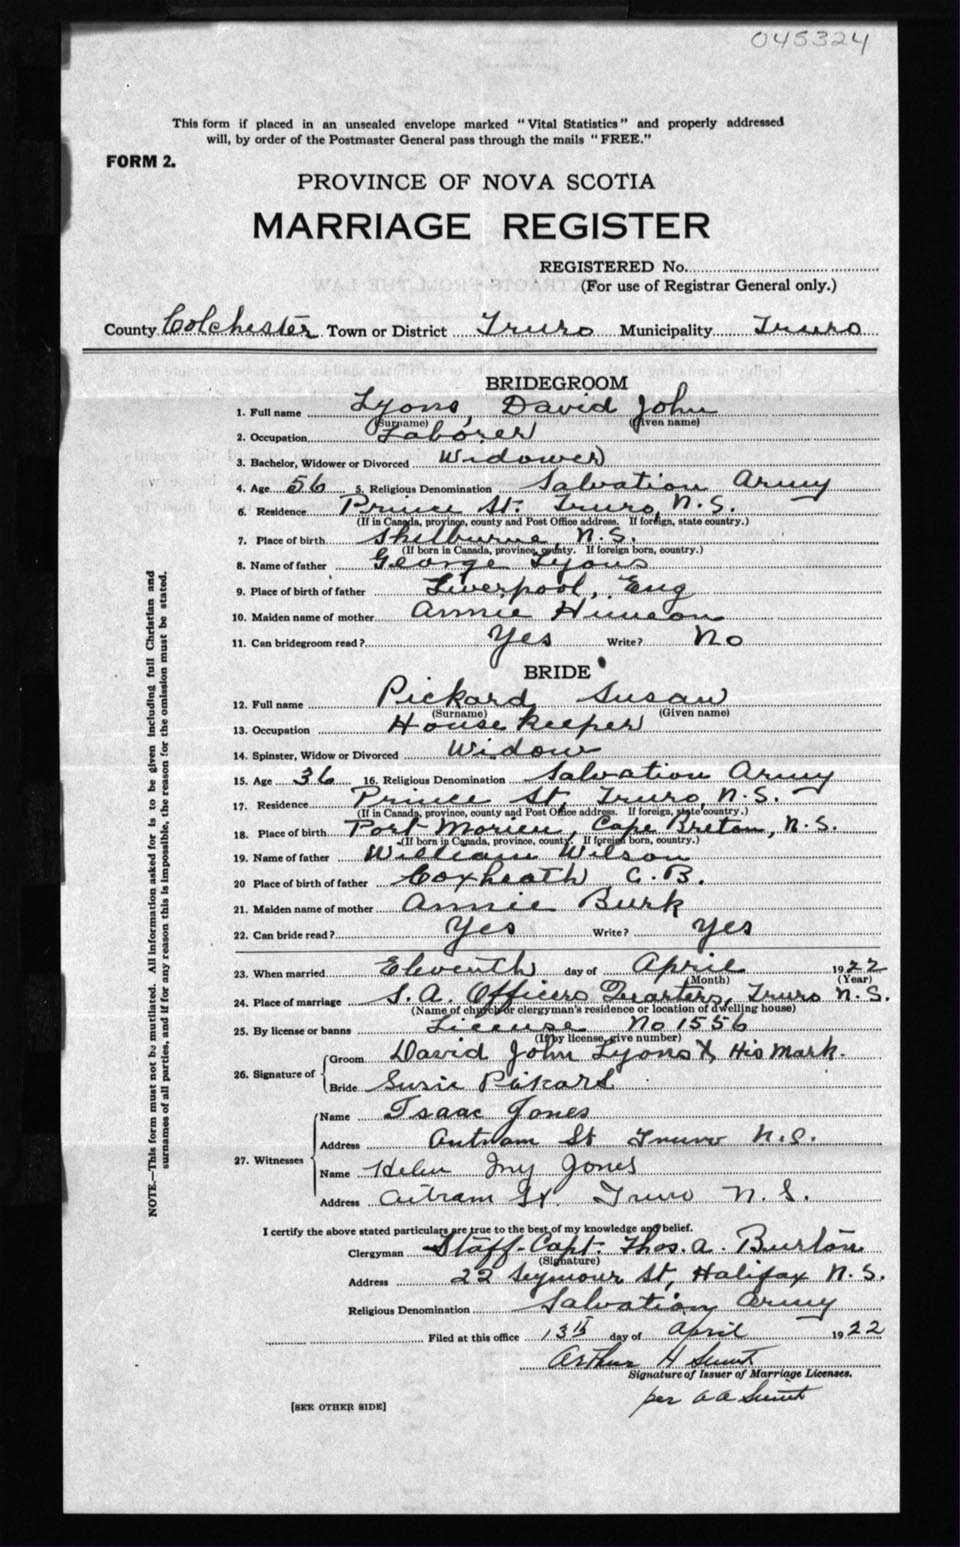 045324
This form if placed in an unsealed envelope marked "Vital Statistics" and properly addressed
will, by order of the Postmaster General pass through the mails "FREE."
FORM 2.
PROVINCE OF NOVA SCOTIA
MARRIAGE REGISTER
REGISTERED No.
(For use of Registrar General only.)
County Colchester Town or District Truro Municipality Truro
BRIDEGROOM
1. Full name Lyons, David John
(Surname) (Given name)
2. Occupation Laborer
3. Bachelor, Widower or Divorced Widower
4. Age 56 5. Religious Denomination Salvation Army
6. Residence Prince St. Truro, N.S.
(If in Canada, province, county and Post Office address. If foreign, state country.)
7. Place of birth Shelburne, N.S.
(If born in Canada, province, county. If foreign born, country.)
8. Name of father George Lyons
9. Place of birth of father Liverpool, Eng
10. Maiden name of mother Annie
11. Can bridegroom read? Yes Write? No
BRIDE
12. Full name Pickard Susan
(Surname) (Given name)
13. Occupation Housekeeper
14. Spinster, Widow or Divorced Widow
15. Age 36 16. Religious Denomination Salvation Army
17. Residence Prince St, Truro, N.S.
(If in Canada, province, county and Post Office address. If foreign, state country.)
18. Place of birth Port Morien, Cape Breton, N.S.
(If born in Canada, province, county. If foreign born, country.)
19. Name of father William Wilson
20 Place of birth of father Coxheath C.B.
21. Maiden name of mother Annie Burk
22. Can bride read? Yes Write? Yes
23. When married Eleventh day of April 1922
(Month) (Year)
24. Place of marriage S.A. Officers Quarters, Truro N.S.
(Name of church or clergyman's residence or location of dwelling house)
25. By license or banns License No 1556
(If by license, give number)
26. Signature of Groom David John Lyons X His Mark.
Bride Susie Pickard
27. Witnesses Name Isaac Jones
Address St Truro N.S.
Name Helen Jones
Address St. Truro N.S.
I certify the above stated particulars are true to the best of my knowledge and belief.
Clergyman Staff-Capt. Thos. A. Burton
(Signature)
Address 22 Seymour St, Halifax N.S.
Religious Denomination Salvation Army
Filed at this office 13th day of April 1922
Arthur H
Signature of Issuer of Marriage Licenses.
per A A
[SEE OTHER SIDE]
NOTE.—This form must not be mutilated. All information asked for is to be given including full Christian and
surnames of all parties, and if for any reason this is impossible, the reason for the omission must be stated.